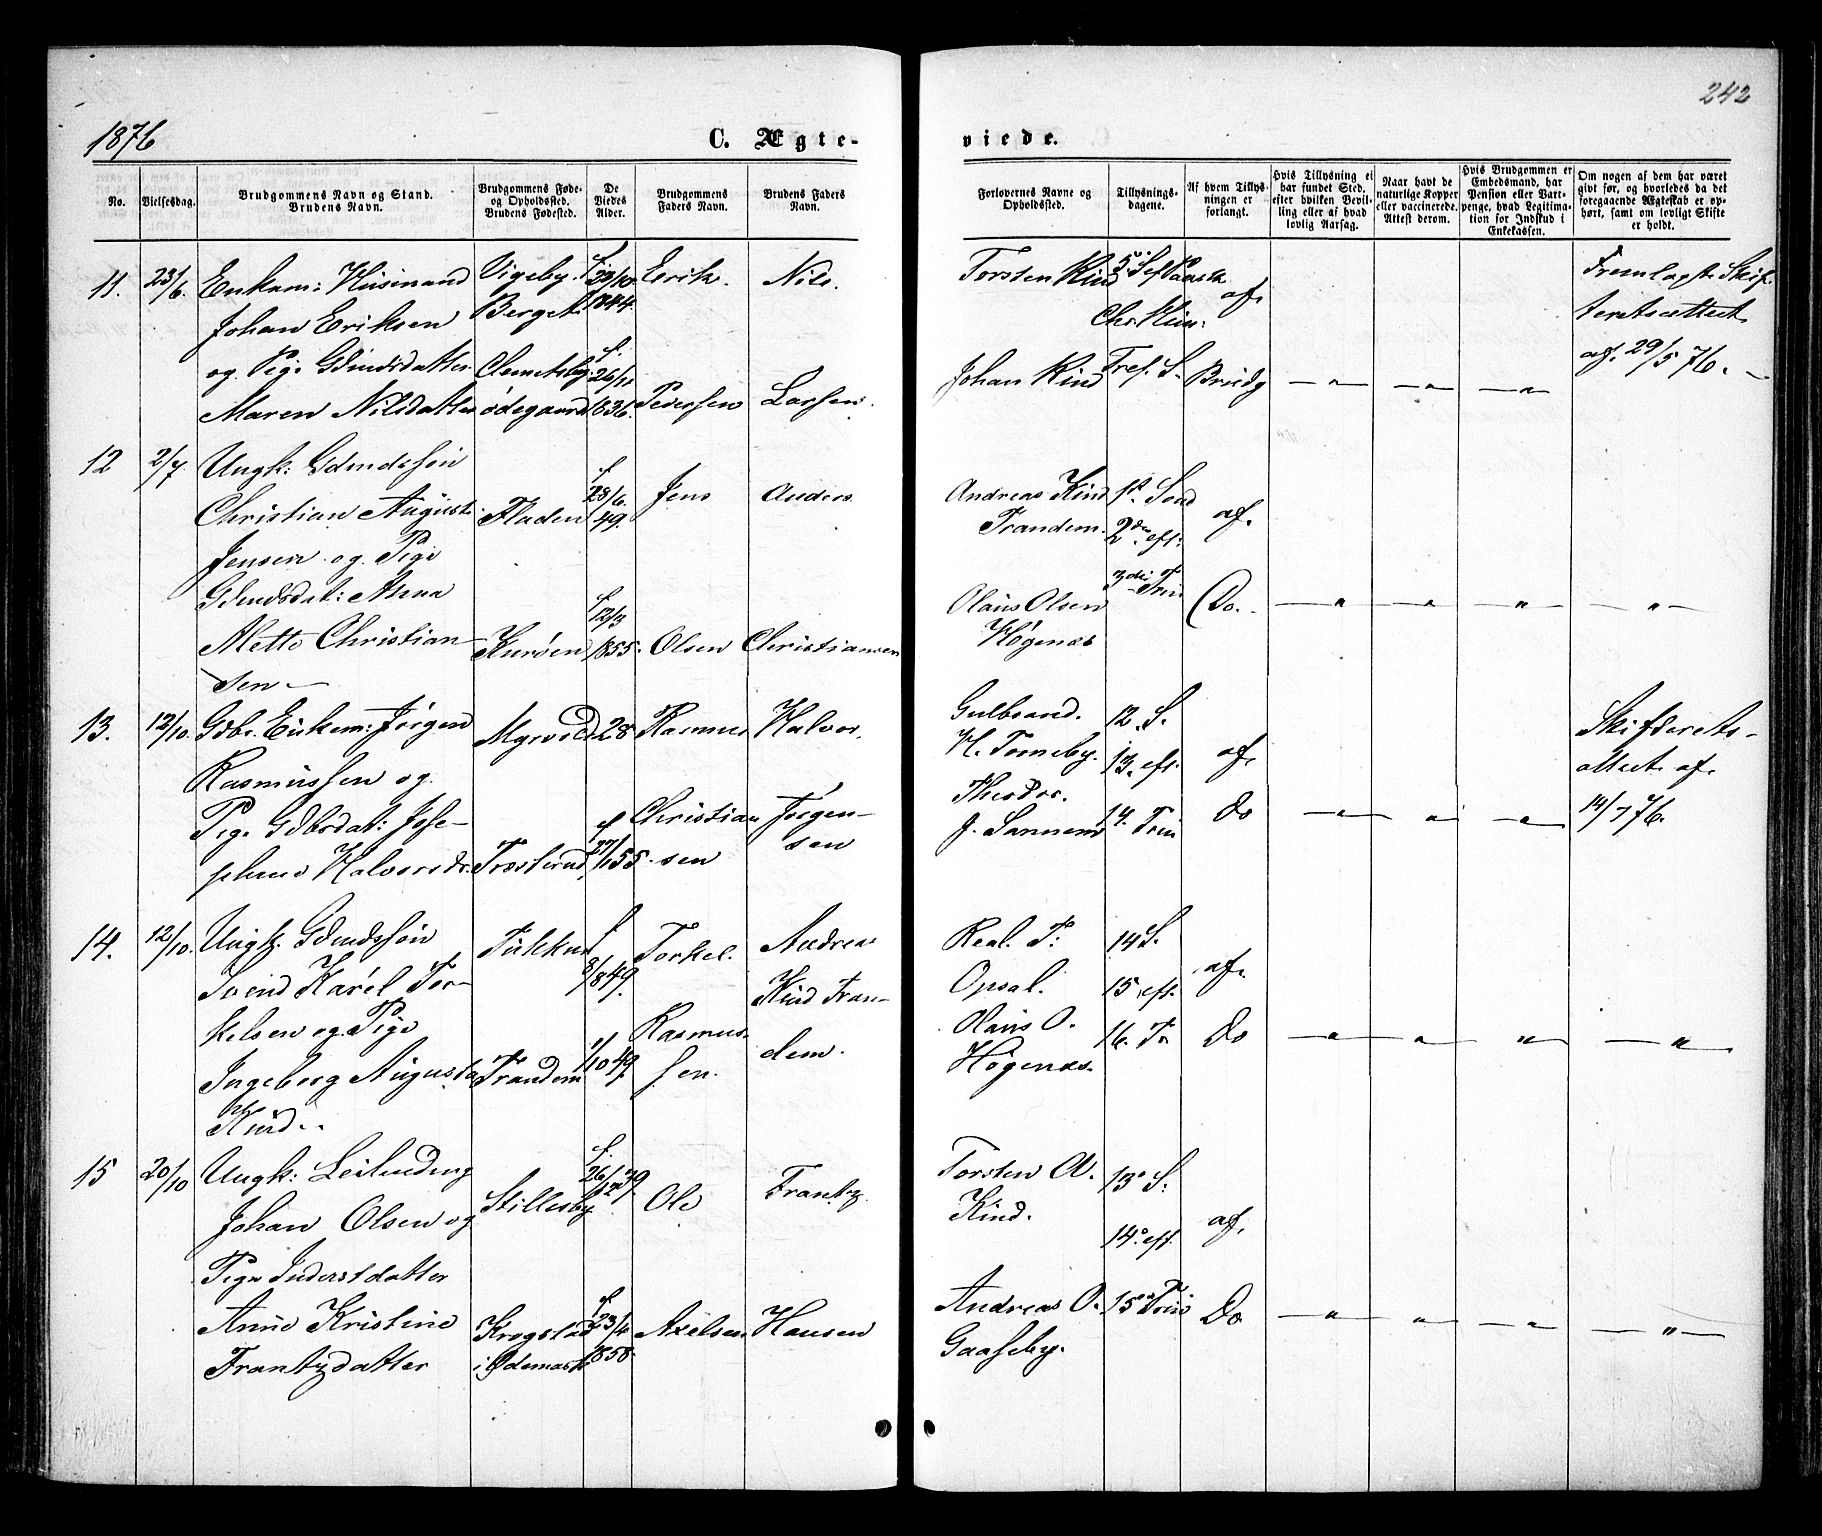 242
1876
C. Ægte-
viede.
No.
Vielsesdag.
Brudgommens Navn og Stand.
Brudens Navn.
Brudgommens Føde-
og Opholdssted.
Brudens Fødested.
De
Viedes
Alder.
Brudgommens
Faders Navn.
Brudens Faders
Navn.
Forlovernes Navne og
Opholdssted.
Tillysnings-
dagene.
Af hvem Tillys-
ningen er
forlangt.
Hvis Tillysning ei
har fundet Sted,
efter hvilken Bevil-
ling eller af hvad
lovlig Aarsag.
Naar havt de
naturlige Kopper
eller vaccinerede.
Attest derom.
Hvis Brudgommen er
Embedsmand, har
Pension eller Vart-
penge, hvad Legitima-
tion for Indskud i
Enkekassen.
Om nogen af dem har været
givt før, og hvorledes da det
foregaaende Ægteskab er op-
hørt, samt om lovligt Skifte
er holdt.
11.
23/6.
Enkem: Husmand
Johan Eriksen
og Pige Gdmdsdatter
Maren Nilsdatter
Vigeby.
Berget
Clemetsby
ødegaard
f.
23/10
1844.
f.
26/11
1836.
Erik.
Pedersen
Nils.
Larsen.
Torsten Kind
Johan Kind
5 S ef Paask
Chr. Him:
Tref. S.
af.
Brudg
— " — — " — — " —
Fremlagt Skif
teretsattest
af. 29/5 76. —
12
2/7.
Ungk: Gdmdssøn
Christian August
Jensen og Pige
Gdmdsdat: Anna
Mette Christian
sen —
Fladen
Kurøen
f
23/6.
49.
f
12/3
1855.
Jens
Olsen
Anders
Christiansen
Andreas Kind
Trandem.
Olaus Olsen
Høgenæs
1st Sønd
2den eft:
3die Trin
af.
Do.
— " — — " — — " — — " —
13.
12/10.
Gdbr. Enkem: Jørgen
Rasmussen og
Pige Gdbsdat: Jose-
phine Halvorsdr.
Mysvold
Trosterud
28
f
27/1 55
Rasmus
Christian
sen
Halvor.
Jørgen-
sen
Gulbrand.
H. Torneby.
Theodor.
J. Sannem
12. S.
13. eft.
14. Trin
af.
Do
— " — — " — — " —
Skifterets-
attest af.
14/7 76.
14.
12/10.
Ungk. Gdmdssøn
Svend Karel Tor-
kelsen og Pige
Ingeborg Augusta
Kind..
Tukkun
Trandem
f
8/8 49.
1/10 49.
Torkel.
Rasmus.
sen.
Andreas
Kind Tran-
dem.
Real. T:
Opsal.
Olaus O.
Høgenæs.
14 S.
15. eft.
16. Tr
af.
Do
— " — — " — — " — — " —
15
20/10
Ungk: Leilænding
Johan Olsen og
Pige Inderstdatter
Anne Kristine
Frantzdatter
Stillesby
Krogstad
i Ødemark
f.
26/12 39.
f.
23/4
1858.
Ole
Axelsen
Frantz.
Hansen
Torsten A.
Kind.
Andreas O.
Gaaseby.
13. S.
14. eft.
15 Trin
af.
Do
— " — — " — — " — — " —